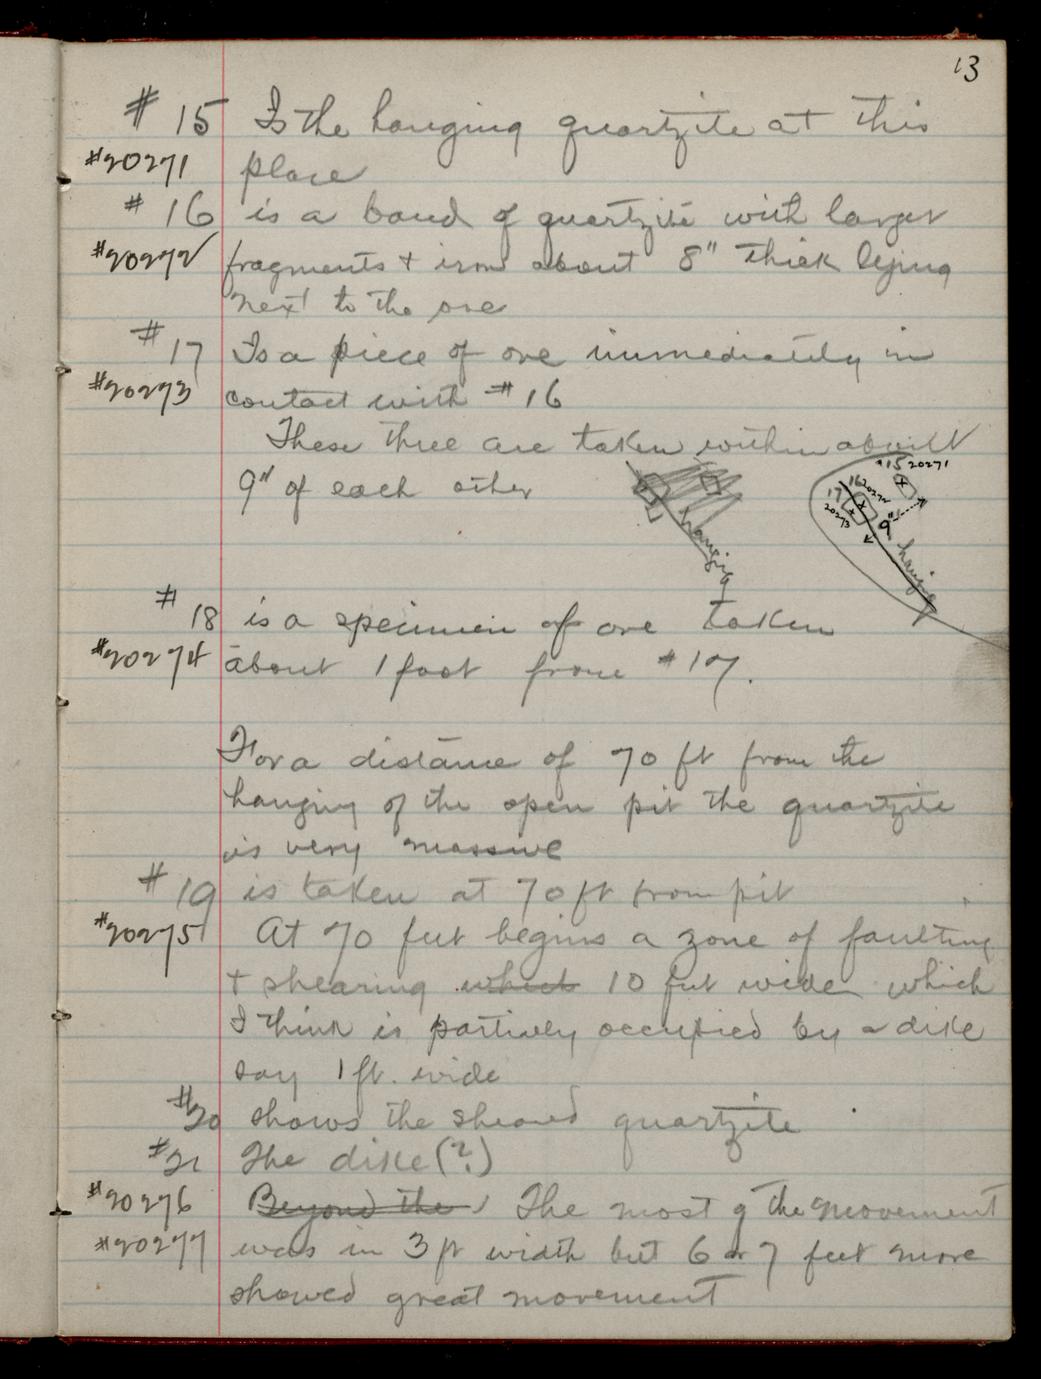 13
# 15 Is the hanging quartzite at this
#20271 place
# 16 is a band of quartzite with larger
#20272 fragments + iron about 8" thick lying
next to the ore
# 17 Is a piece of ore immediately in
#20273 contact with # 16
These three are taken within about
9" of each other
hanging
15 20271
16 20272
17
20273
9"
hanging
# 18 is a specimen of ore taken
#20274 about 1 foot from #17.
For a distance of 70 ft from the
hanging of the open pit the quartzite
is very massive
# 19 is taken at 70 ft from pit
#20275 At 70 feet begins a zone of faulting
+ shearing which 10 feet wide which
I think is partively occupied by a dike
say 1 ft. wide
#20 shows the sheared quartzite
#21 The dike (?)
#20276 Beyond the The most of the movement
#20277 was in 3 ft width but 6 or 7 feet more
showed great movement